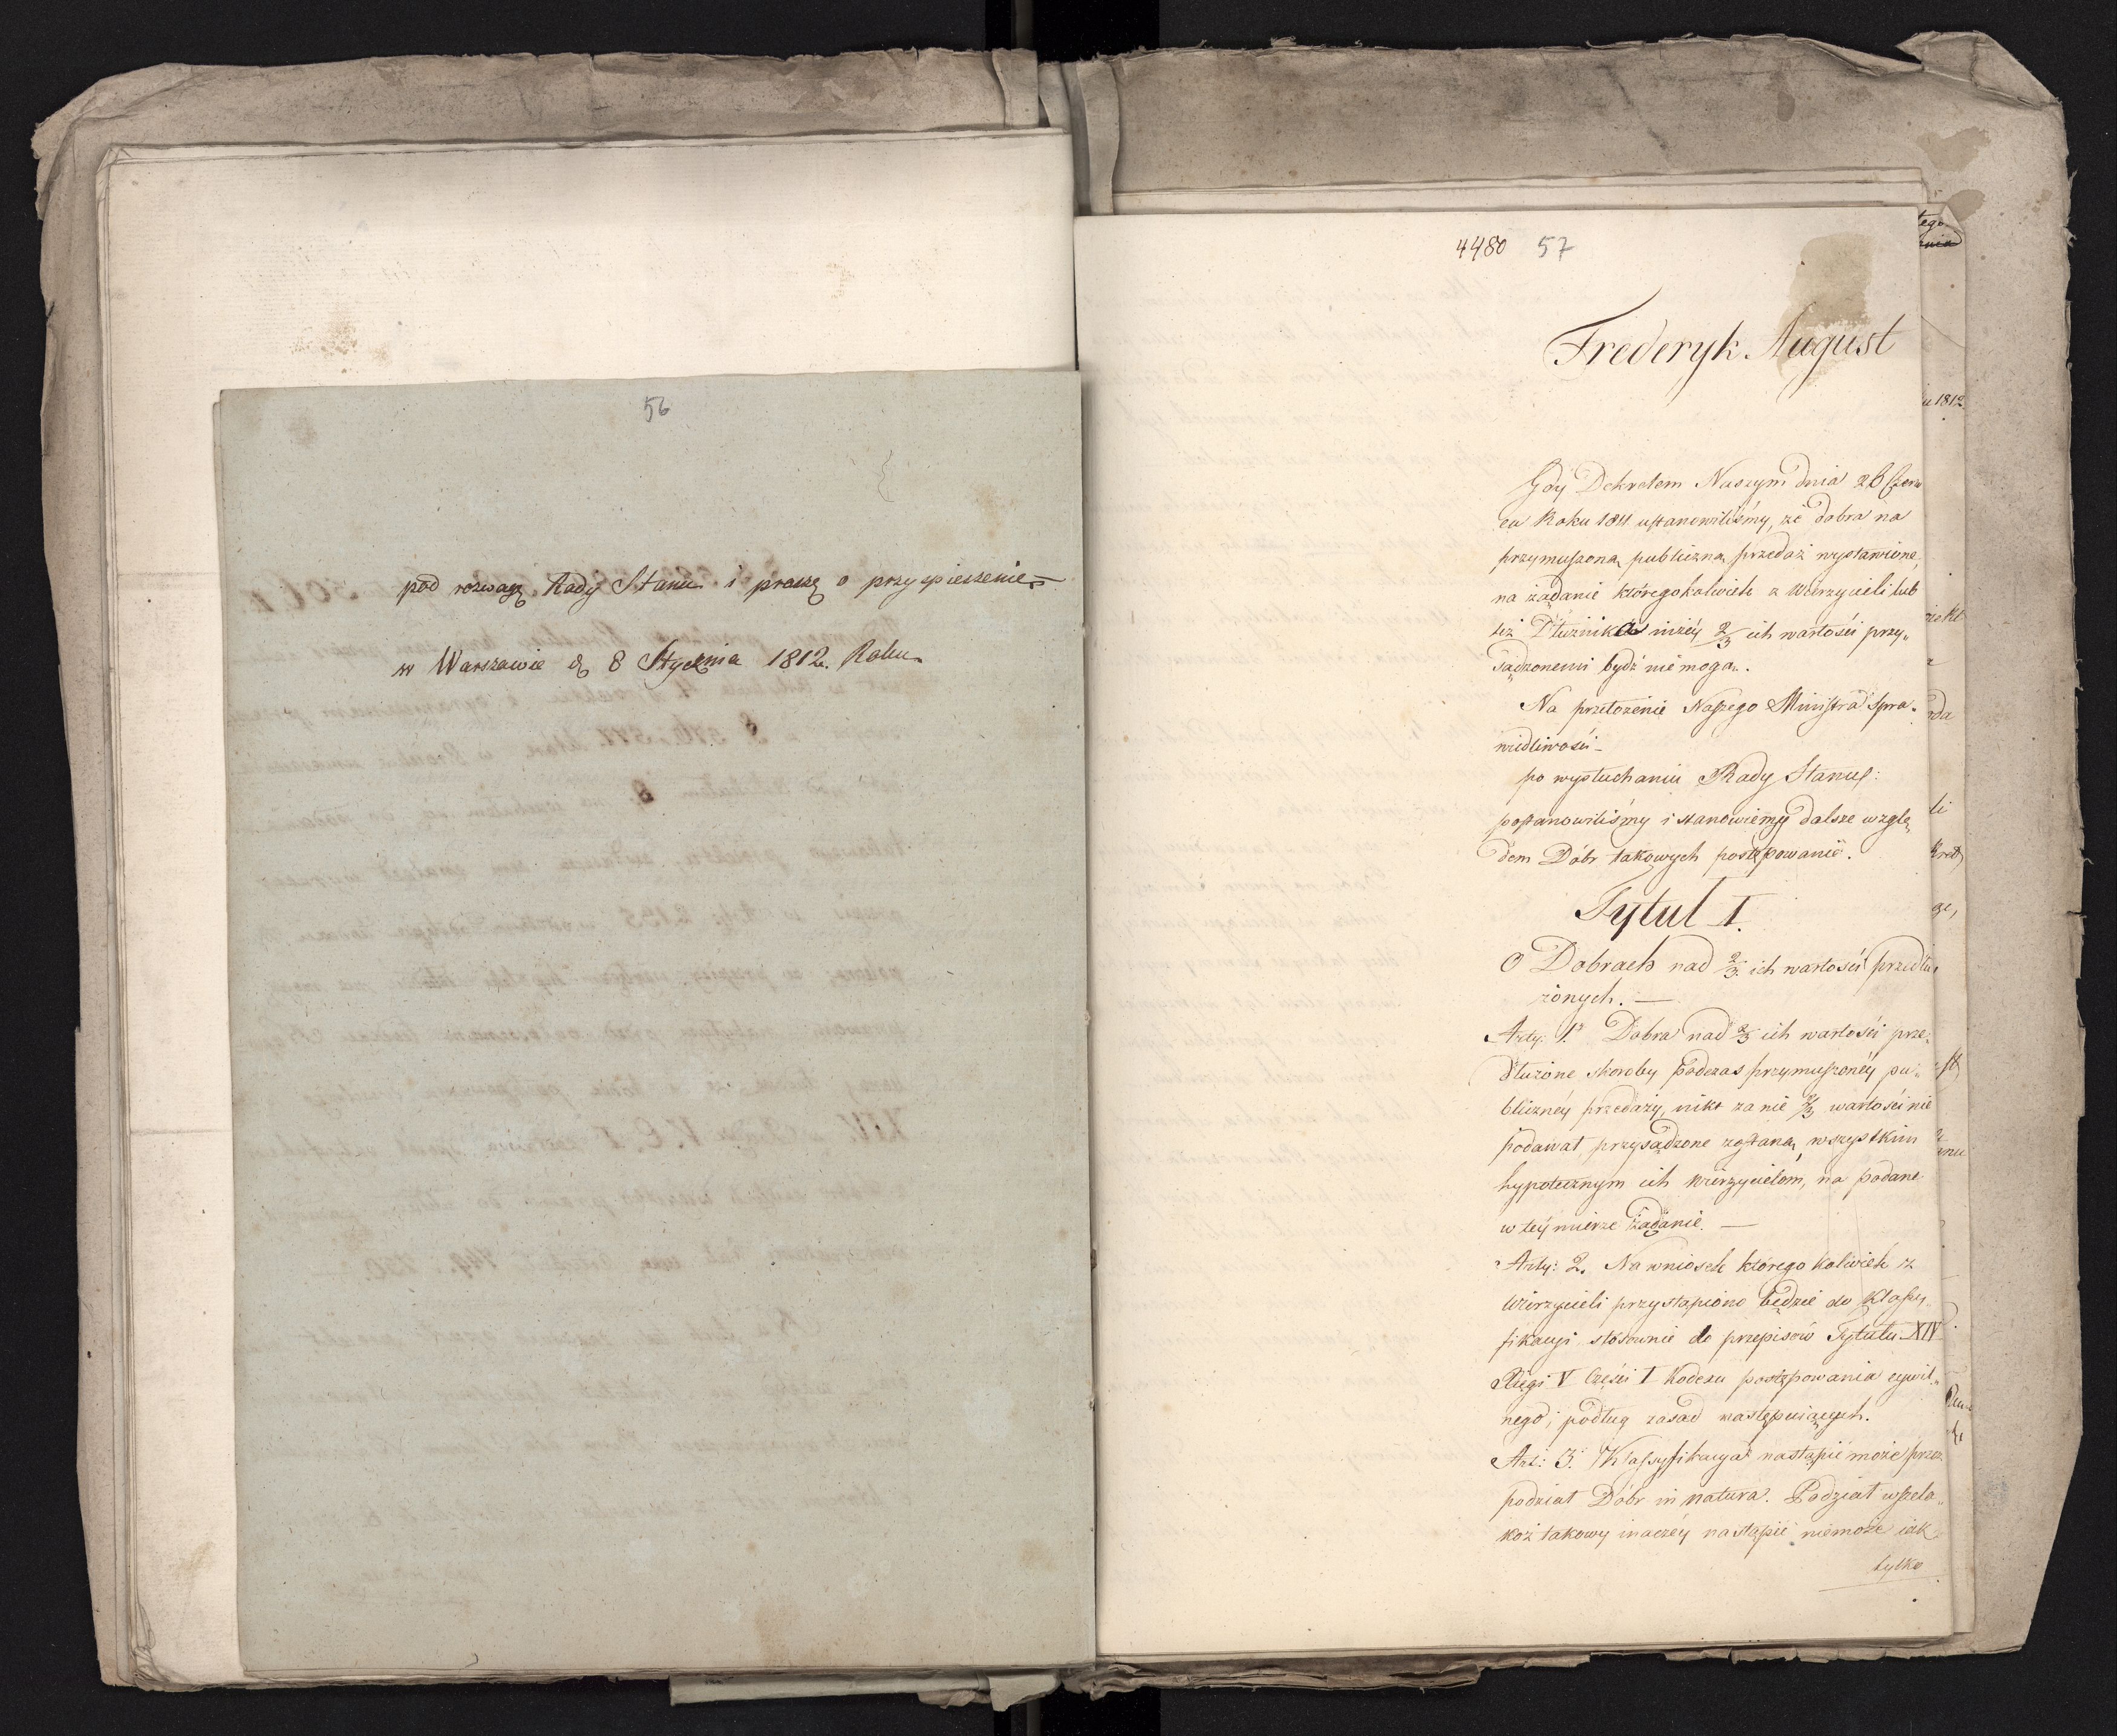 56
pod rozwagę Rady Stanu i proszę o przyspieszenie
w Warszawie d. 8 Stycznia 1812. Roku.
4480 57
Frederyk August
Gdy Dekretem Naszym dnia 26 Czerw
ca Roku 1811 ustanowiliśmy, że dobra na
przymuszoną publiczną przedaż wystawione,
na żądanie któregokolwiek z Wierzycieli lub
też Dłużnika niżéy 2/3 ich wartości przy„
sądzonemi bydź nie mogą.
Na przełożenie Naszego Ministra Spra„
wiedliwości_
po wysłuchaniu Rady Stanu:
postanowiliśmy i stanowiemy dalsze wzglę„
dem Dóbr takowych postępowanie.
Tytuł I.
O Dobrach nad 2/3 ich wartości przedłu
żonych. —
Arty: 1. Dobra nad 2/3 ich wartości prze„
dłużone skoroby podczas przymuszonéy pu„
blicznéy przedaży, nikt za nie 2/3 wartości nie
podawał, przysądzone zostaną, wszystkim
hypotecznym ich wierzycielom, na podane
w téy mierze żądanie. —
Arty: 2. Na wniosek którego kolwiek z
Wierzycieli przystąpiono będzie do Klassy„
fikacyi stosownie do przepisów Tytułu XIV
Księgi V Części I Kodexu postępowania cywil„
nego, podług zasad następuiących.
Art: 3. Klassyfikacya nastąpić może przez
podział Dóbr in natura. Podział wszela„
koż takowy inaczéy nastąpić niemoże iak
tylko
tego
u 1812